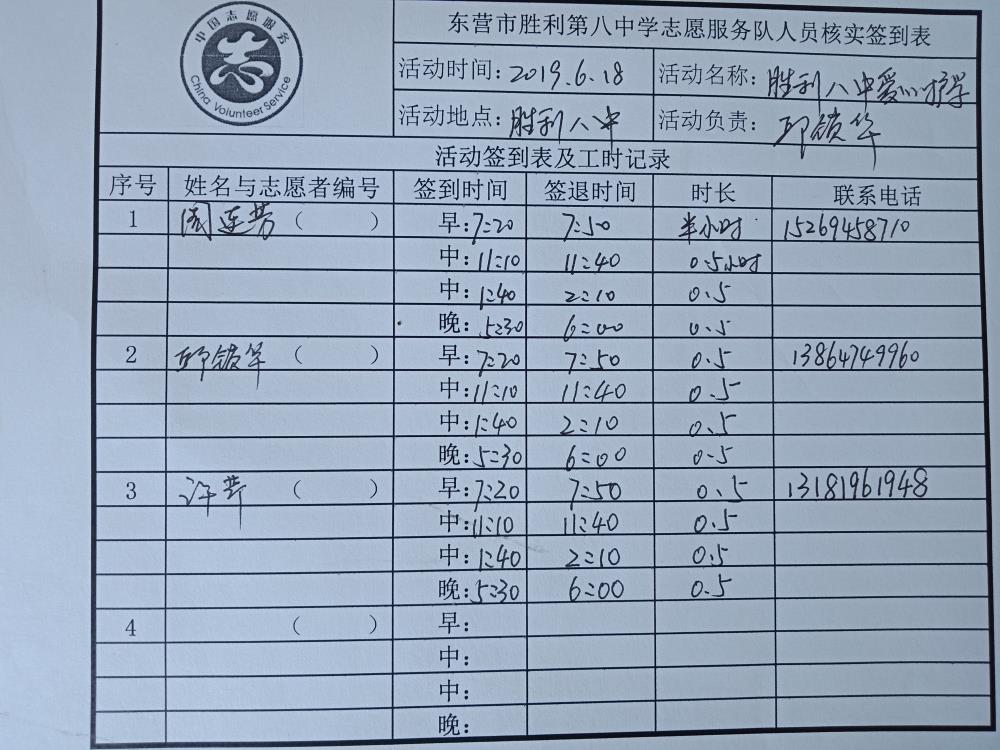 中国志愿服务
China Volunteer Service
东营市胜利第八中学志愿服务队人员核实签到表
活动时间: 2019.6.18 活动名称: 胜利八中爱心护学
活动地点: 胜利八中 活动负责: 邱锁华
活动签到表及工时记录
序号 姓名与志愿者编号 签到时间 签退时间 时长 联系电话
1 周连芳 ( ) 早:7:20 7:50 半小时 15269458710
中:11:10 11:40 0.5小时
中:1:40 2:10 0.5
晚:5:30 6:00 0.5
2 邱锁华 ( ) 早:7:20 7:50 0.5 13864749960
中:11:10 11:40 0.5
中:1:40 2:10 0.5
晚:5:30 6:00 0.5
3 许芹 ( ) 早:7:20 7:50 0.5 13181961948
中:11:10 11:40 0.5
中:1:40 2:10 0.5
晚:5:30 6:00 0.5
4 ( ) 早:
中:
中:
晚: